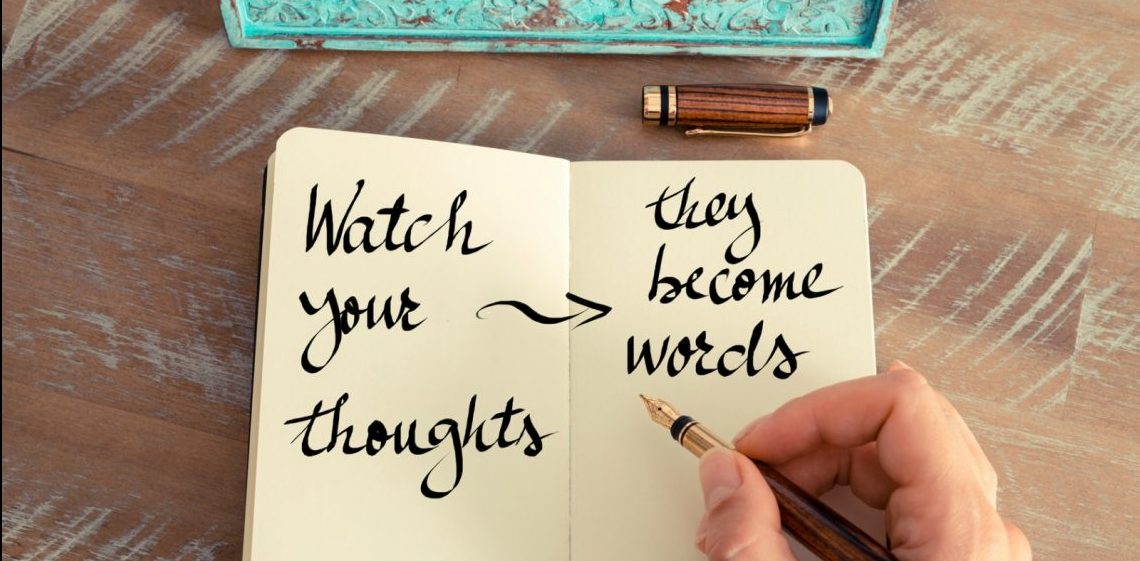 Watch
your
thoughts
they
become
words